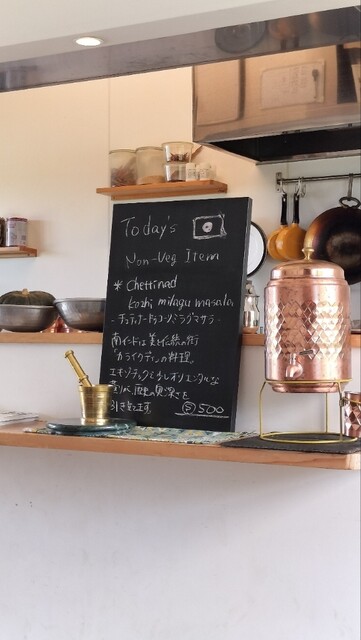 Today's
Non-Veg Item
* Chettinad
kozhi milagu masala
-チェティナードゥコーリミラグマサラ-
南インドは美と伝統の街
"カライクディ"の料理。
エキゾティックと少しオリエンタルな
香りが、歴史の奥深さを
引き立てます。
500